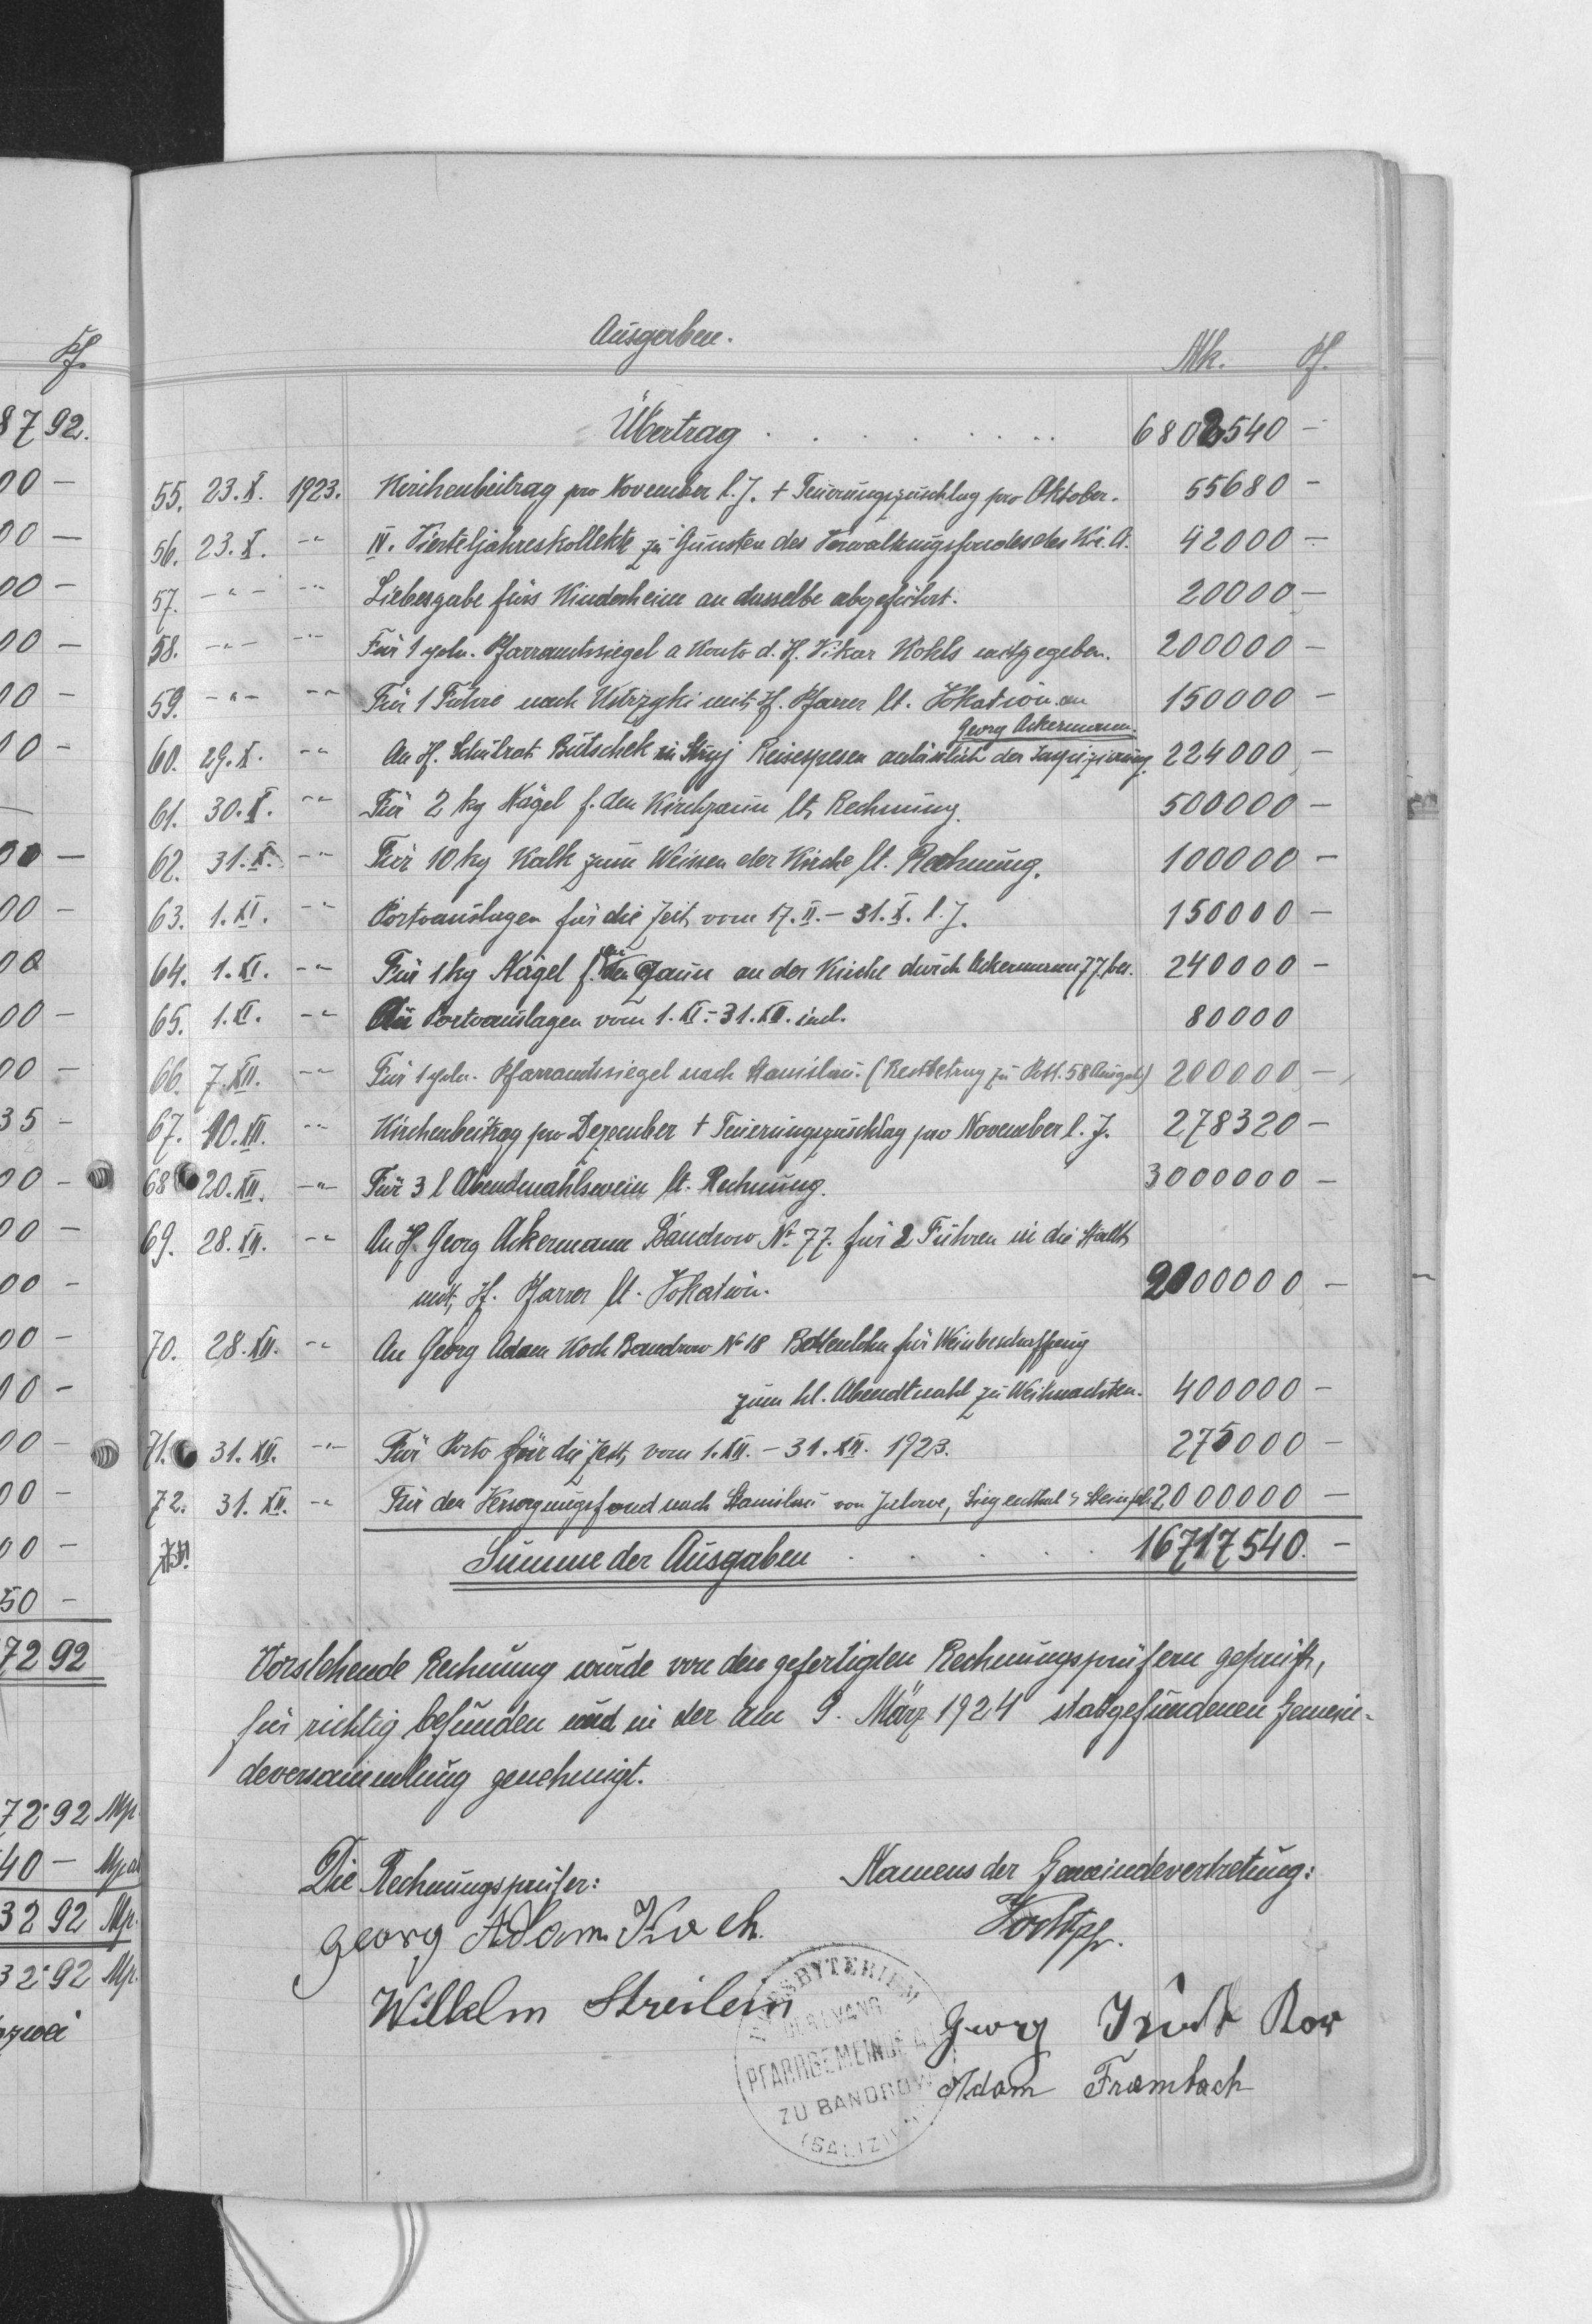 Pf.
87 92.
00 -
00 -
00 -
00 -
00 -
00 -
00 -
00 -
00
00 -
00 -
35 -
00 -
00 -
00 -
00 -
00 -
00 -
00 -
00 -
50 -
72 92
72 92 Mp.
40 -
32 92 Mp.
32 92 Mp.
Ausgaben. Mk. Pf.
Übertrag . . . . . . . . 6802540 -
55. 23.X. 1923. Kirchenbeitrag pro November l. J. + Teuerungszuschlag pro Oktober. 55680 -
56. 23.X. -"- IV. Vierteljahreskollekte zu Gunsten des Verwaltungsfondes des Kir. A. 42000 -
57. -"- -"- Liebesgabe fürs Kinderheim an dasselbe abgeführt. 20000 -
58. -"- -"- Für 1 poln. Pfarramtssiegel a Konto d. H. Vikar Kohls mitgegeben. 200000 -
59. -"- -"- Für 1 Fuhre nach Ustrzyki mit H. Pfarrer lt. Vokation an 150000 -
Georg Ackermann.
60. 29.X. -"- An H. Schulrat Butschek in Stryj Reisespesen anlässlich der Inspizierung 224000 -
61. 30.X. -"- Für 2 kg Nägel f. den Kirchzaun lt. Rechnung. 500000 -
62. 31.X. -"- Für 10 kg Kalk zum Weissen der Kirche lt. Rechnung. 100000 -
63. 1.XI. -"- Portoauslagen für die Zeit vom 17.II. - 31.X. l. J. 150000 -
64. 1.XI. -"- Für 1 kg Nägel f. den Zaun an der Kirche durch Ackermann 77 bes. 240000 -
65. 1.XI. -"- An Portoauslagen vom 1.XI. - 31.XII. incl. 80000
66. 7.XII. -"- Für 1 poln. Pfarramtssiegel nach Stanislau. (Restbetrag zu Post. 58 Ausgab.) 200000 -
67. 10.XII. -"- Kirchenbeitrag pro Dezember + Teuerungszuschlag pro November l. J. 278320 -
68 20.XII. -"- Für 3 l Abendmahlswein lt. Rechnung. 3000000 -
69. 28.XII. -"- An H. Georg Ackermann Bandrow No. 77. für 2 Fuhren in die Stadt
mit H. Pfarrer lt. Vokation. 2000000 -
70. 28.XII. -"- An Georg Adam Koch Bandrow No 18 Bottenlohn für Weinbeschaffung
zum hl. Abendmahl zu Weihnachten. 400000 -
71. 31.XII. -"- Für Porto für die Zeit vom 1.XII. - 31.XII. 1923. 275000 -
72. 31.XII. -"- Für den Versorgungsfond nach Stanislau von Siegenthal & Steinfels 2000000 -
73.
Summe der Ausgaben . . . . . 16717540. -
Vorstehende Rechnung wurde von den gefertigten Rechnungsprüfern geprüft,
für richtig befunden und in der am 9. März 1924 stattgefundenen Gemein-
deversammlung genehmigt.
Die Rechnungsprüfer: Namens der Gemeindevertretung:
Georg Adam Koch.
Wilhelm Streilein
Georg
Adam Frambach
PRESBYTERIUM
DER EVANG.
PFARRGEMEINDE A.
ZU BANDROW
(GALIZIEN)